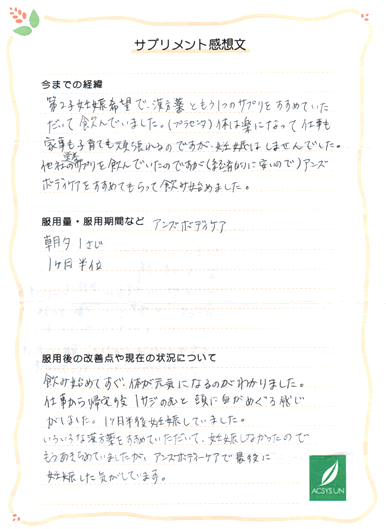 サプリメント感想文
今までの経緯
第2子妊娠希望で、漢方薬ともう1つのサプリをすすめていた
だいて飲んでいました。(プラセンタ)体は楽になって仕事も
家事も子育ても頑張れるのですが、妊娠はしませんでした。
他社のサプリを飲んでいたのですが(経済的に安いので)アンズ
ボディケアをすすめてもらって飲み始めました。
服用量・服用期間など アンズボディケア
朝夕1さじ
1ヶ月半位
服用後の改善点や現在の状況について
飲み始めてすぐ、体が元気になるのがわかりました。
仕事から帰宅後1サジのむと頭に血がめぐる感じ
がしました。1ヶ月半後妊娠していました。
いろいろな漢方薬をすすめていただいて、妊娠しなかったので
もうあきらめていましたが、アンズボディーケアで最後に
妊娠した気がしています。
ACSYS UN